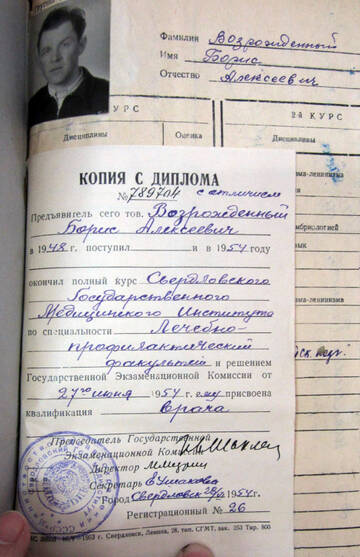 Фамилия Возрожденный
Имя Борис
Отчество Алексеевич
КУРС
2-й КУРС
Дисциплины
Оценка
Дисциплины
КОПИЯ С ДИПЛОМА
№ 789704 с отличием
Предъявитель сего тов. Возрожденный
Борис Алексеевич
в 1948 г. поступил и в 1954 году
окончил полный курс Свердловского
Государственного
Медицинского Института
по специальности Лечебно-
профилактический
факультет и решением
Государственной Экзаменационной Комиссии от
27го июня 1954 г. ему присвоена
квалификация Врача
Председатель Государственной
Экзаменационной Комиссии
Директор
Секретарь Ушакова
Город Свердловск 1954 г.
Регистрационный № 26
1953 г. Свердловск, Ленина, 28, тип. СГМТ, зак. 253 Тир. 800